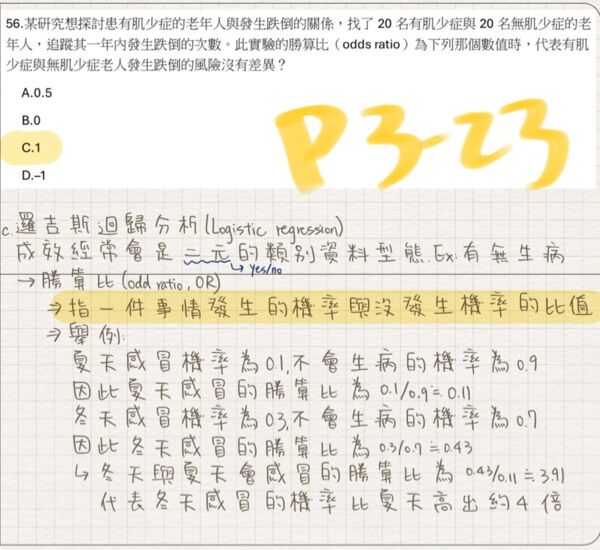 56.某研究想探討患有肌少症的老年人與發生跌倒的關係，找了 20 名有肌少症與 20 名無肌少症的老
年人，追蹤其一年內發生跌倒的次數。此實驗的勝算比（odds ratio）為下列那個數值時，代表有肌
少症與無肌少症老人發生跌倒的風險沒有差異？
A.0.5
B.0
C.1
D.–1
P3-23
c.邏吉斯迴歸分析(Logistic regression)
成效經常會是二元的類別資料型態.Ex:有無生病
→ yes/no
→ 勝算比(odd ratio, OR)
⇒ 指一件事情發生的機率與沒發生機率的比值
⇒ 舉例:
夏天感冒機率為0.1,不會生病的機率為0.9
因此夏天感冒的勝算比為 0.1/0.9≒0.11
冬天感冒機率為03,不會生病的機率為0.7
因此冬天感冒的勝算比為 0.3/0.7≒0.43
↳ 冬天與夏天會感冒的勝算比為 0.43/0.11≒3.91
代表冬天感冒的機率比夏天高出約4倍